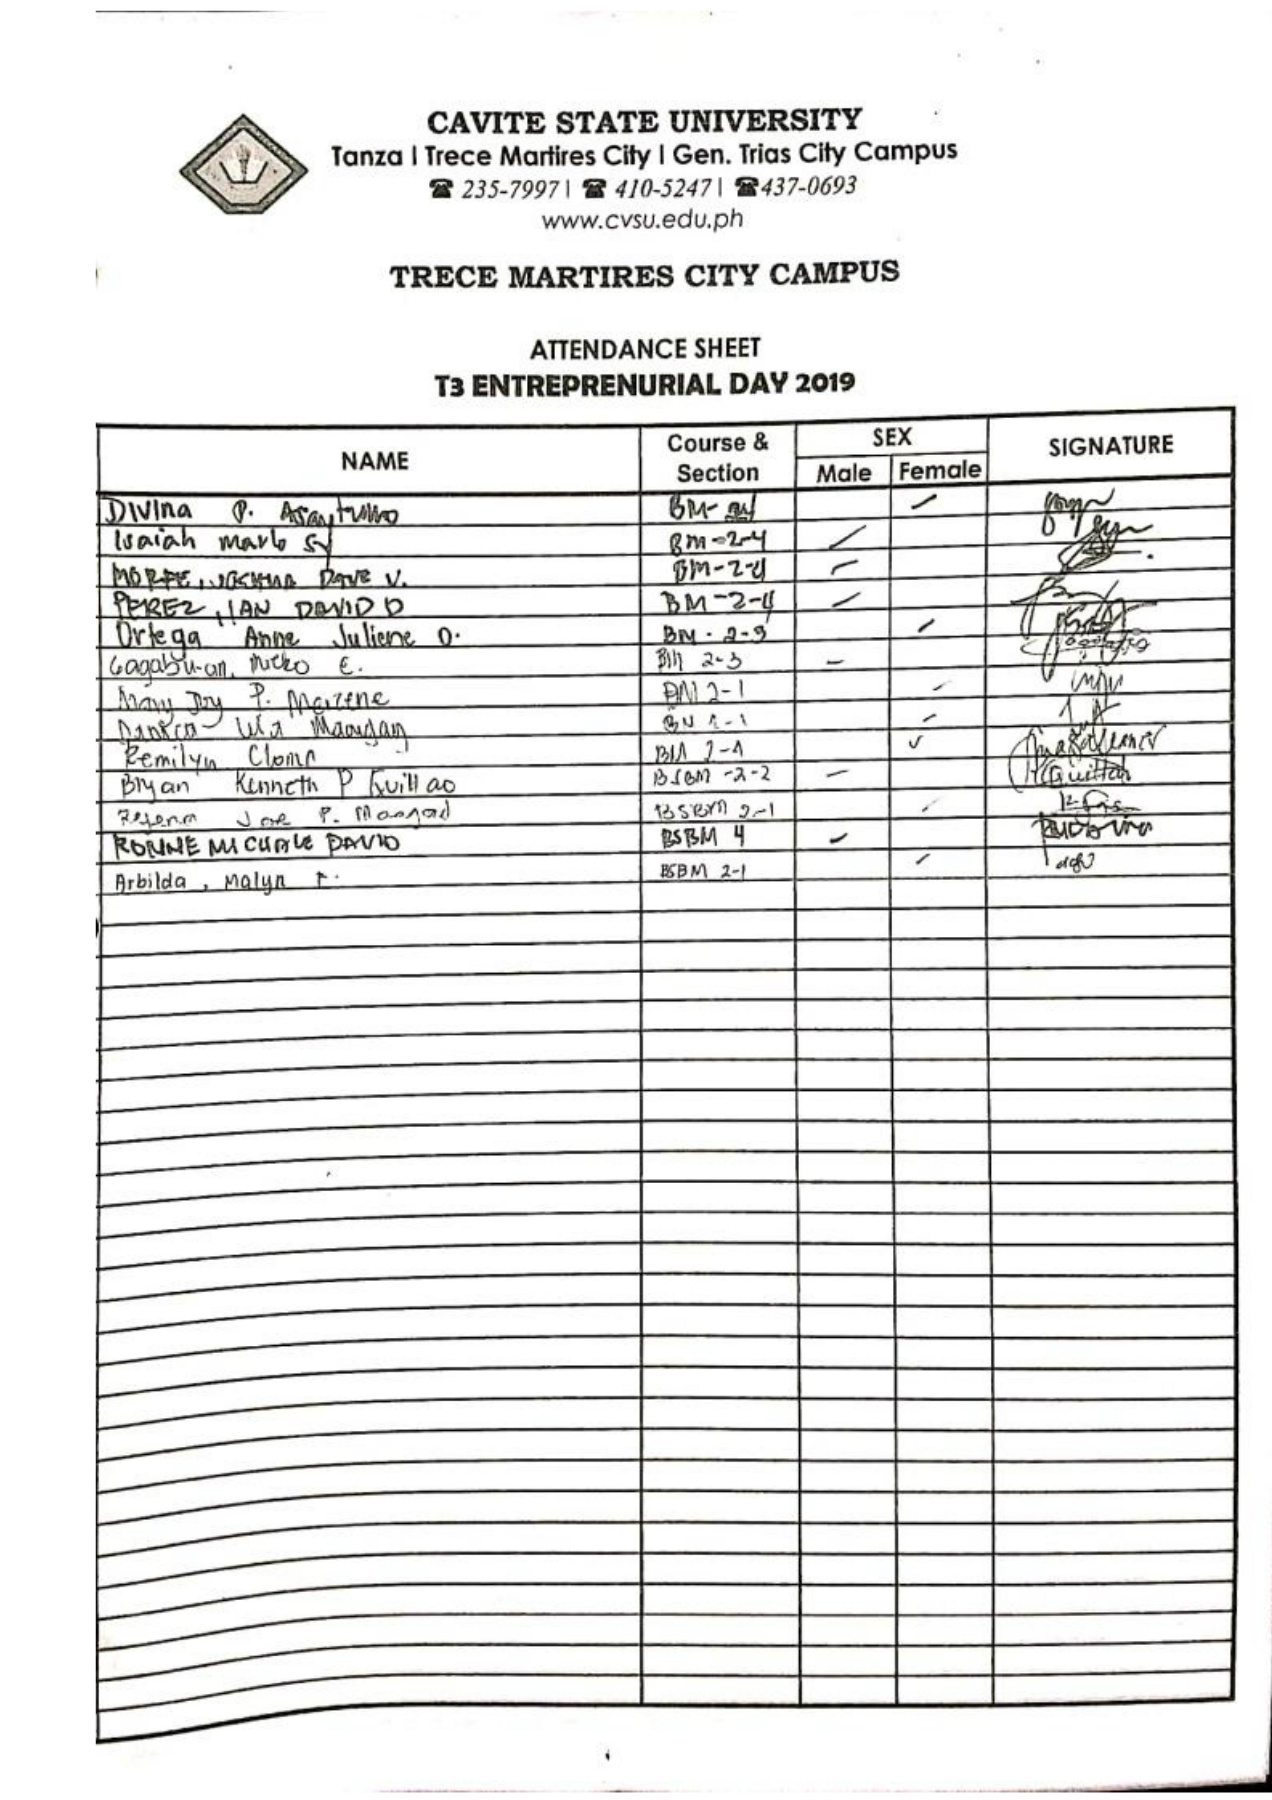 CAVITE STATE UNIVERSITY
Tanza | Trece Martires City | Gen. Trias City Campus
☎ 235-7997 | ☎ 410-5247 | ☎437-0693
www.cvsu.edu.ph
TRECE MARTIRES CITY CAMPUS
ATTENDANCE SHEET
T3 ENTREPRENURIAL DAY 2019
NAME Course & Section SEX Male Female SIGNATURE
Divina P. BM-
Isaiah Mark Sy BM-2-4
MORFE, DAVE V. BM-2-4
PEREZ, IAN DAVID D BM-2-4
Ortega Anne Juliene O. BM-2-3
E. BM 2-3
Mary Joy P. BM 2-1
Remilyn Cloma
Bryan Kenneth P Quillao BSBM-2-2
Joe P. BSBM 2-1
RONNE MICHALE DAVID BSBM 4
Arbilda, Malyn BSBM 2-1